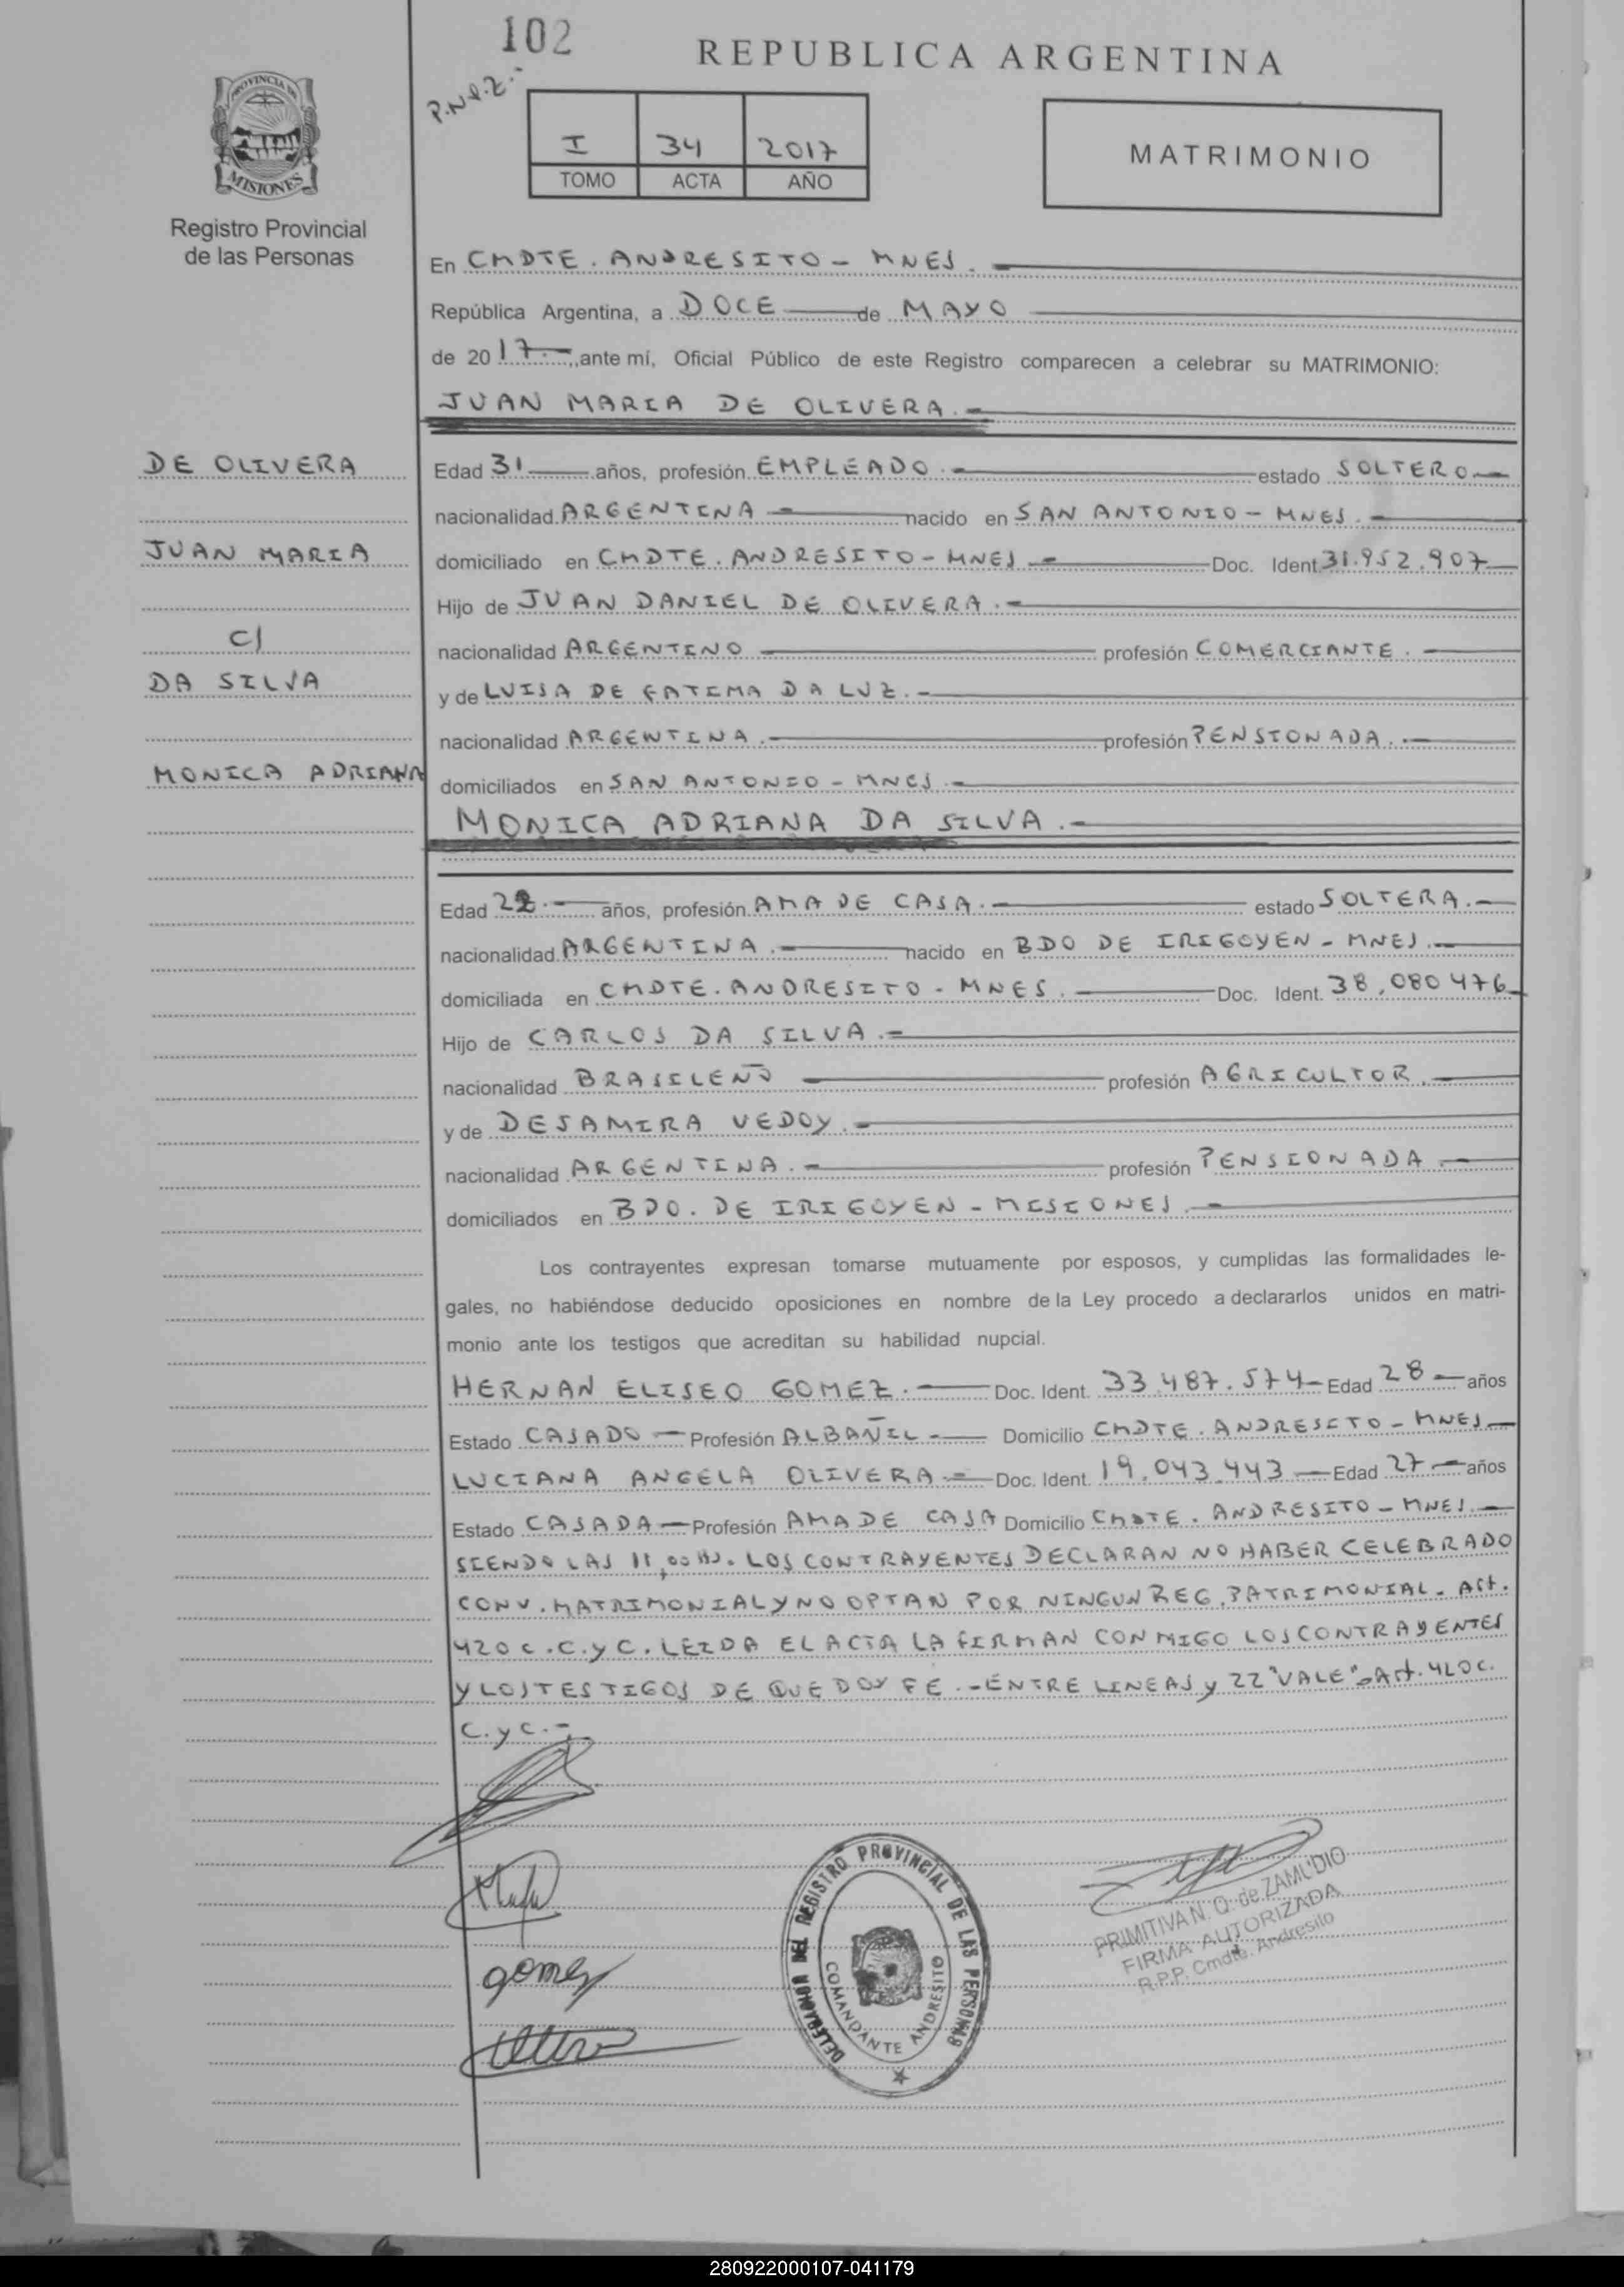 102
REPUBLICA ARGENTINA
P.N.Q.Z.-
PROVINCIA DE
MISIONES
I 34 2017
TOMO ACTA AÑO
MATRIMONIO
Registro Provincial
de las Personas
En CMDTE. ANDRESITO - MNES.
República Argentina, a DOCE de MAYO
de 2017.- ,ante mí, Oficial Público de este Registro comparecen a celebrar su MATRIMONIO:
JUAN MARIA DE OLIVERA.-
DE OLIVERA
JUAN MARIA
C/
DA SILVA
MONICA ADRIANA
Edad 31 años, profesión EMPLEADO.- estado SOLTERO-
nacionalidad ARGENTINA - nacido en SAN ANTONIO - MNES.-
domiciliado en CMDTE. ANDRESITO - MNES - Doc. Ident. 31.952.907
Hijo de JUAN DANIEL DE OLIVERA.-
nacionalidad ARGENTINO profesión COMERCIANTE.-
y de LUISA DE FATIMA DA LUZ.-
nacionalidad ARGENTINA.- profesión PENSIONADA.-
domiciliados en SAN ANTONIO - MNES.-
MONICA ADRIANA DA SILVA.-
Edad 22.- años, profesión AMA DE CASA.- estado SOLTERA.-
nacionalidad ARGENTINA.- nacido en BDO DE IRIGOYEN - MNES.-
domiciliada en CMDTE. ANDRESITO - MNES. Doc. Ident. 38.080476
Hijo de CARLOS DA SILVA.-
nacionalidad BRASILEÑO profesión AGRICULTOR.-
y de DESAMIRA VEDOY.-
nacionalidad ARGENTINA.- profesión PENSIONADA.-
domiciliados en BDO. DE IRIGOYEN - MISIONES.-
Los contrayentes expresan tomarse mutuamente por esposos, y cumplidas las formalidades le-
gales, no habiéndose deducido oposiciones en nombre de la Ley procedo a declararlos unidos en matri-
monio ante los testigos que acreditan su habilidad nupcial.
HERNAN ELISEO GOMEZ.- Doc. Ident. 33.487.574- Edad 28- años
Estado CASADO- Profesión ALBAÑIL- Domicilio CMDTE. ANDRESITO - MNES.-
LUCIANA ANGELA OLIVERA.- Doc. Ident. 19.043.443- Edad 27- años
Estado CASADA- Profesión AMA DE CASA Domicilio CMDTE. ANDRESITO - MNES.-
SIENDO LAS 11,00 HS. LOS CONTRAYENTES DECLARAN NO HABER CELEBRADO
CONV. MATRIMONIAL Y NO OPTAN POR NINGUN REG. PATRIMONIAL. Art.
420 C.C.y C. LEIDA EL ACTA LA FIRMAN CONMIGO LOS CONTRAYENTES
Y LOS TESTIGOS DE QUE DOY FE.-ENTRE LINEAS y 22 "VALE"-Art. 420 C.
C.y C.-
gomez
DELEGACION DEL REGISTRO PROVINCIAL DE LAS PERSONAS
COMANDANTE ANDRESITO
PRIMITIVA N. Q. de ZAMUDIO
FIRMA AUTORIZADA
R.P.P. Cmdte. Andresito
280922000107-041179